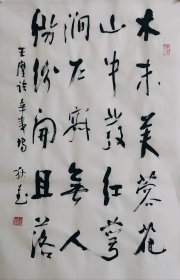 木末芙蓉花
山中發紅萼
澗戶寂無人
紛紛開且落
王維詩辛夷塢